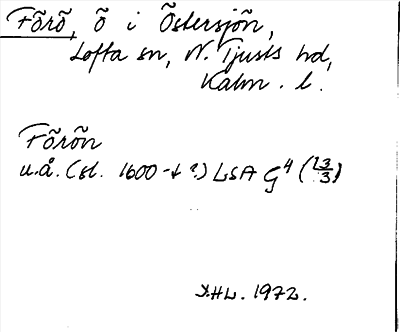 Förö, ö i Östersjön,
Lofta sn, N. Tjusts hd,
Kalm. l.
Förön
u.å. (sl. 1600-t ?) LSA G⁴ (13/3)
1972.